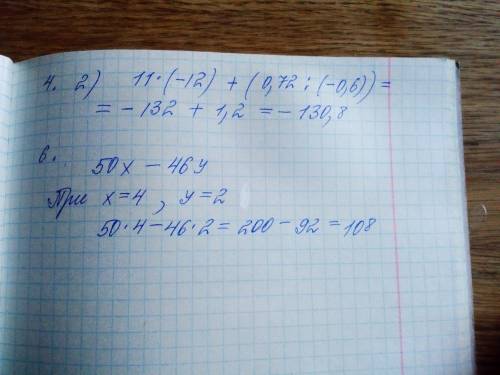 4. 2) 11·(-12) + (0,72 : (-0,6)) =
= - 132 + 1,2 = - 130,8
6. 50x - 46y
При x=4 , y=2
50·4-46·2=200-92=108